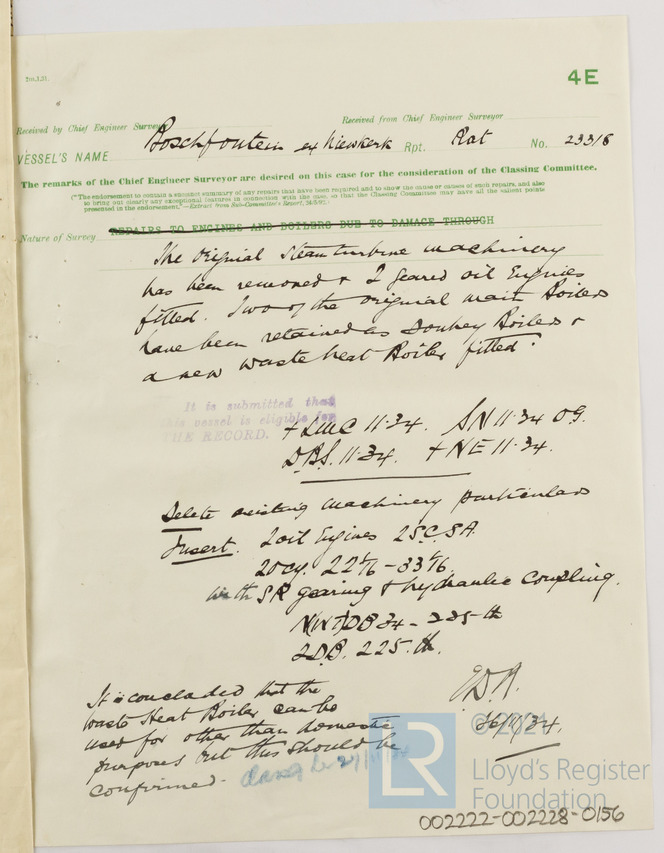 4E
Received by Chief Engineer Surveyor
Received from Chief Engineer Surveyor
VESSEL'S NAME Boschfontein ex Niewkerk Rpt. Rot No. 23318
The remarks of the Chief Engineer Surveyor are desired on this case for the consideration of the Classing Committee.
("The endorsement to contain a succinct summary of any repairs that have been required and to show the cause or causes of such repairs, and also
to bring out clearly any exceptional features in connection with the case, so that the Classing Committee may have all the salient points
presented in the endorsement."—Extract from Sub-Committee's Report,
Nature of Survey REPAIRS TO ENGINES AND BOILERS DUE TO DAMAGE THROUGH
The original Steam turbine machinery
has been removed & 2 geared oil Engines
fitted. Two of the original main Boilers
have been retained as Donkey Boilers &
a new waste heat Boiler fitted.
It is submitted that
this vessel is eligible for
THE RECORD.
+ LMC 11.34. SN 11.34 OG.
D.B.S. 11.34. + NE 11.34.
Delete existing machinery particulars
Insert. 2 oil Engines 2S.C.SA.
20cy. 22 1/16 - 33 7/16
with SR gearing & hydraulic coupling.
34 - 225 lb
2 D.B. 225 lb.
It is concluded that the
Waste Heat Boiler can be
used for other than domestic
purposes but this should be
confirmed.
26/11/34.
© 2021
LR
Lloyd's Register
Foundation
002222-002228-0156